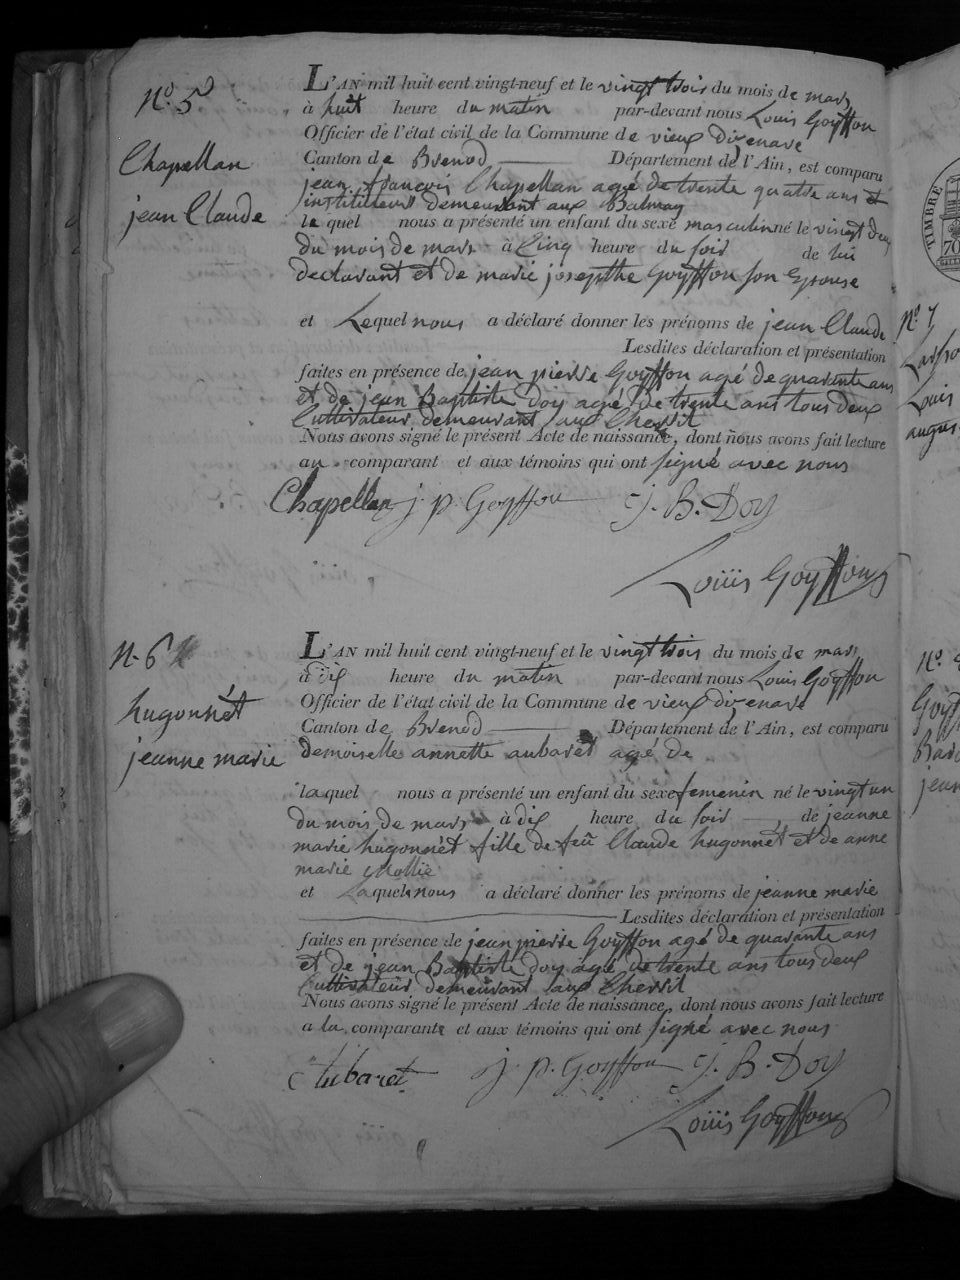 N.° 5
Chapellan
jean Claude
L'AN mil huit cent vingt-neuf et le vingt trois du mois de mars
à huit heure du matin par-devant nous Louis Goyffon
Officier de l'état civil de la Commune de vieux dizenave
Canton de Brenod Département de l'Ain, est comparu
jean françois Chapellan agé de trente quatre ans et
institilleur demeurant aux Balmay
le quel nous a présenté un enfant du sexe masculin né le vingt deux
du mois de mars à Cinq heure du soir de lui
declarant et de marie josephte Goyffon son Epouse
et Lequel nous a déclaré donner les prénoms de jean Claude
Lesdites déclaration et présentation
faites en présence de jean pierre Goyffon agé de quarante ans
et de jean Baptiste Doy agé de trente ans tous deux
Cultivateur demeurant aux Chevril
Nous avons signé le présent Acte de naissance, dont nous avons fait lecture
au comparant et aux témoins qui ont signé avec nous
Chapellan j. p. Goyffon j. B. Doy
Louis Goyffons
N. 6
hugonnét
jeanne marie
L'AN mil huit cent vingt-neuf et le vingt trois du mois de mars
à dix heure du matin par-devant nous Louis Goyffon
Officier de l'état civil de la Commune de vieux dizenave
Canton de Brenod Département de l'Ain, est comparu
demoiselle annette aubaret agé de
la quel nous a présenté un enfant du sexe femenin né le vingt un
du mois de mars à dix heure du soir de jeanne
marie hugonnét fille de feû Claude hugonnét et de anne
marie Mollie
et Laquel nous a déclaré donner les prénoms de jeanne marie
Lesdites déclaration et présentation
faites en présence de jean pierre Goyffon agé de quarante ans
et de jean Baptiste Doy agé de trente ans tous deux
Cultivateur demeurant aux Chevril
Nous avons signé le présent Acte de naissance, dont nous avons fait lecture
a la comparante et aux témoins qui ont signé avec nous
Aubaret j. p. Goyffon j. B. Doy
Louis Goyffons
TIMBRE
70
N.° 7
Louis